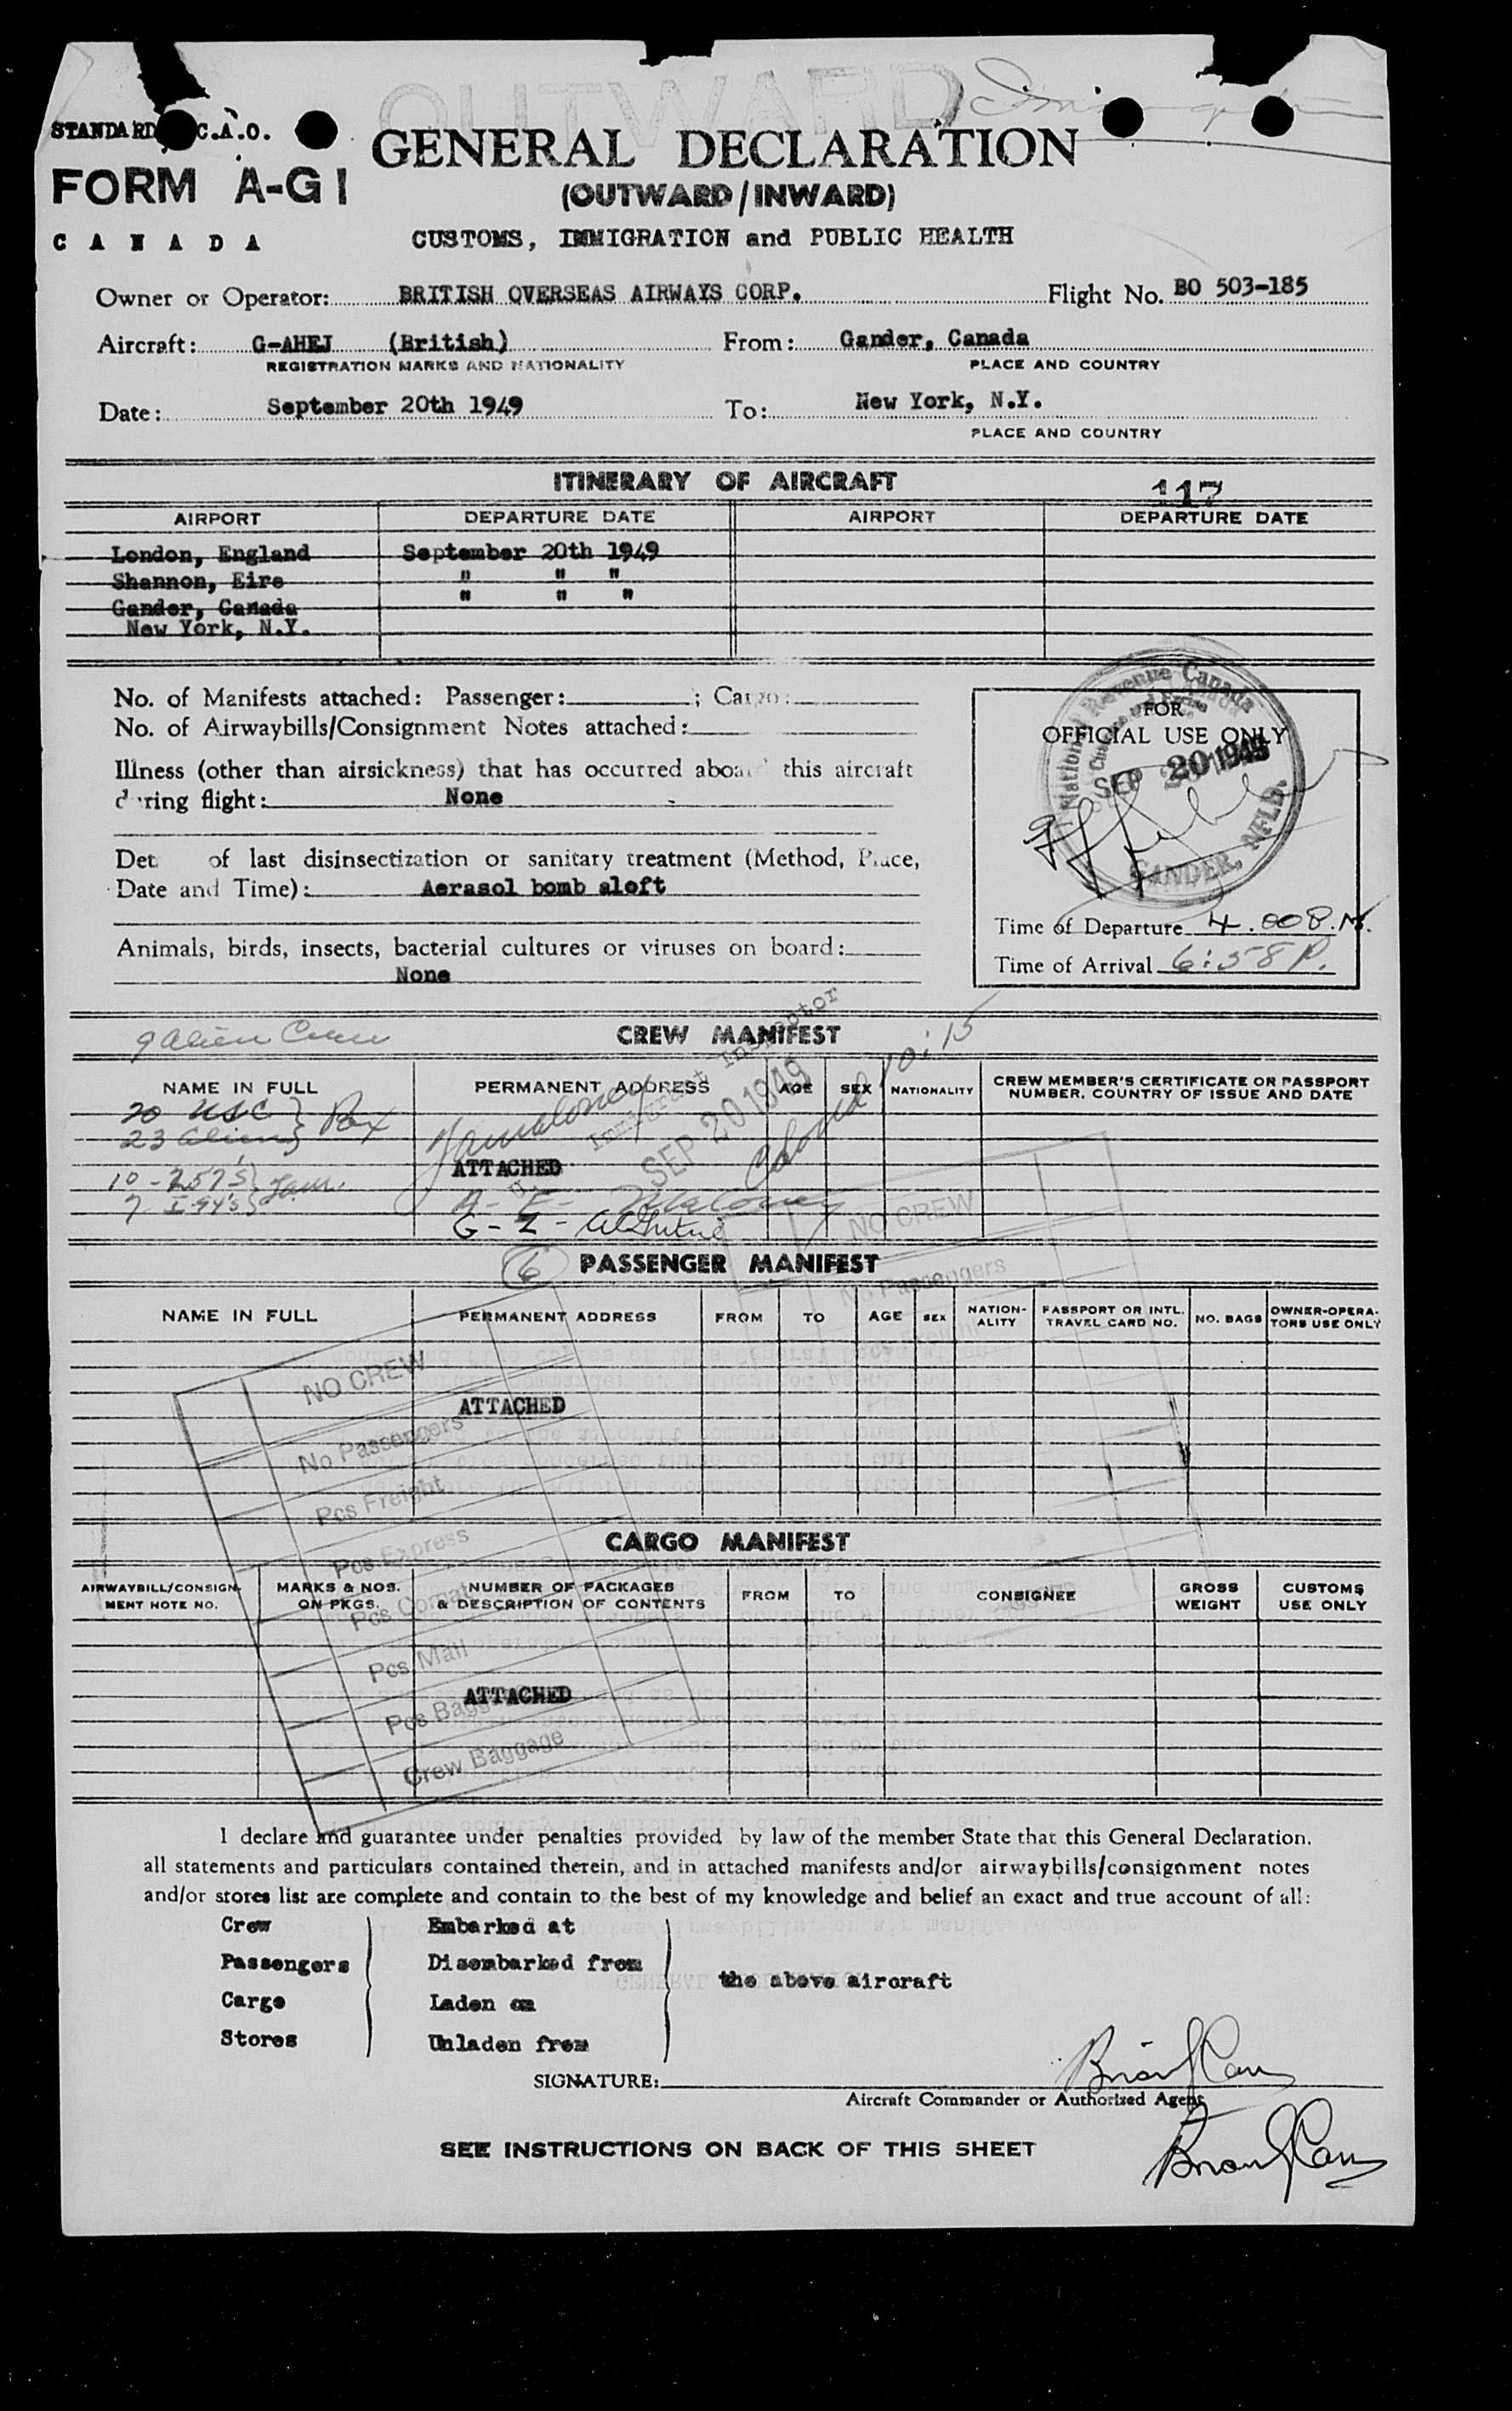 OUTWARD
STANDARD C.A.O.
FORM A-G1
CANADA
GENERAL DECLARATION
(OUTWARD/INWARD)
CUSTOMS, IMMIGRATION and PUBLIC HEALTH
Owner or Operator: BRITISH OVERSEAS AIRWAYS CORP. Flight No. BO 503-185
Aircraft: G-AHEJ (British) From: Gander, Canada
REGISTRATION MARKS AND NATIONALITY PLACE AND COUNTRY
Date: September 20th 1949 To: New York, N.Y.
PLACE AND COUNTRY
ITINERARY OF AIRCRAFT
117
AIRPORT DEPARTURE DATE AIRPORT DEPARTURE DATE
London, England September 20th 1949
Shannon, Eire " " "
Gander, Canada " " "
New York, N.Y.
No. of Manifests attached: Passenger: ; Cargo:
No. of Airwaybills/Consignment Notes attached:
Illness (other than airsickness) that has occurred aboard this aircraft
during flight: None
Det of last disinsectization or sanitary treatment (Method, Place,
Date and Time): Aerasol bomb aloft
Animals, birds, insects, bacterial cultures or viruses on board:
None
National Revenue Canada
Customs and Excise
SEP 20 1949
GANDER, NFLD.
FOR
OFFICIAL USE ONLY
Time of Departure 4.00 P.M.
Time of Arrival 6:58 P.
9 alien Crew
CREW MANIFEST
10:15
NAME IN FULL PERMANENT ADDRESS AGE SEX NATIONALITY CREW MEMBER'S CERTIFICATE OR PASSPORT
NUMBER, COUNTRY OF ISSUE AND DATE
20 USC } Pax
23 aliens }
10 - 257's }
7 I-94's }
Immigrant Inspector
SEP 20 1949
ATTACHED
6
PASSENGER MANIFEST
NAME IN FULL PERMANENT ADDRESS FROM TO AGE SEX NATION-
ALITY PASSPORT OR INTL.
TRAVEL CARD NO. NO. BAGS OWNER-OPERA-
TORS USE ONLY
ATTACHED
NO CREW
No Passengers
NO CREW
No Passengers
Pcs Freight
Pcs Express
Pcs Comat
Pcs Mail
Pcs Baggage
Crew Baggage
CARGO MANIFEST
AIRWAYBILL/CONSIGN-
MENT NOTE NO. MARKS & NOS.
ON PKGS. NUMBER OF PACKAGES
& DESCRIPTION OF CONTENTS FROM TO CONSIGNEE GROSS
WEIGHT CUSTOMS
USE ONLY
ATTACHED
I declare and guarantee under penalties provided by law of the member State that this General Declaration.
all statements and particulars contained therein, and in attached manifests and/or airwaybills/consignment notes
and/or stores list are complete and contain to the best of my knowledge and belief an exact and true account of all:
Crew Embarked at
Passengers Disembarked from
the above aircraft
Cargo Laden on
Stores Unladen from
SIGNATURE:
Aircraft Commander or Authorized Agent
SEE INSTRUCTIONS ON BACK OF THIS SHEET